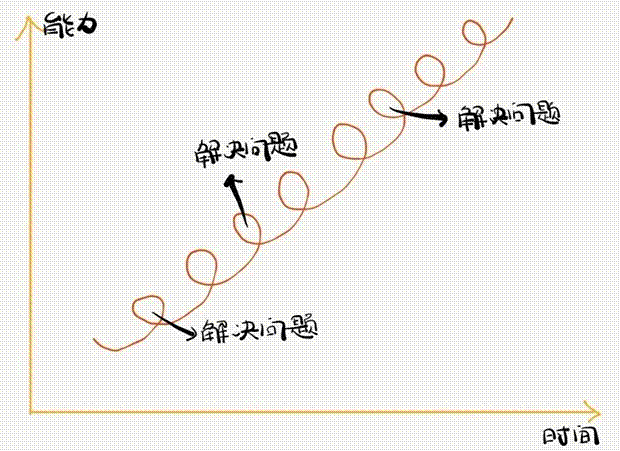 能力
解决问题
解决问题
解决问题
时间